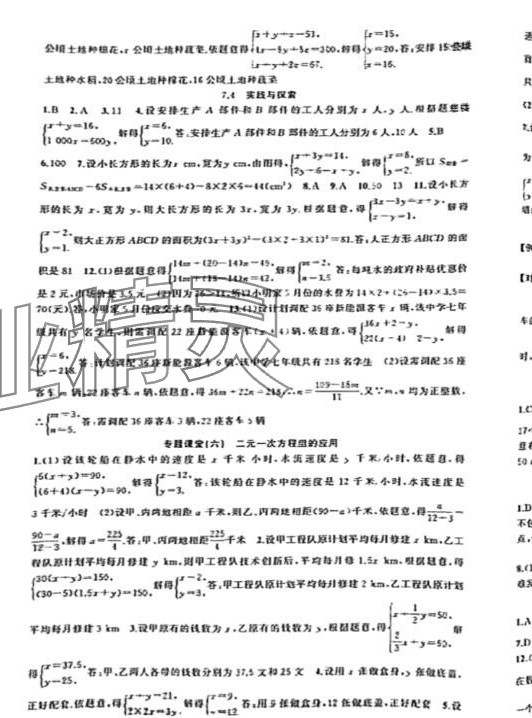 公顷土地种棉花,z 公顷土地种蔬菜.依题意得 { x+y+z=51, =300, x+y+2z=67. 解得 { x=15, y=20, z=16. 答:安排 15 公顷
土地种水稻,20 公顷土地种棉花,16 公顷土地种蔬菜
7.4 实践与探索
1.B 2.A 3.11 4.设安排生产 A 部件和 B 部件的工人分别为 x 人,y 人.根据题意得
{ x+y=16, 1 000x=600y, 解得 { x=6, y=10. 答:安排生产 A 部件和 B 部件的工人分别为 6 人,10 人 5.B
6.100 7.设小长方形的长为 x cm,宽为 y cm,由图得, { x+3y=14, 2y+6=x+y, 解得 { x=8, y=2. 所以
=14×(6+4)-8×2×6=44(cm²) 8.A 9.A 10.50 13 11.设小长方
形的长为 x,宽为 y.则大长方形的长为 3x,宽为 3y.根据题意,得 { 3x-3y=x+y, x-y=1. 解得
{ x=2, y=1. 则大正方形 ABCD 的面积为(3x+3y)²=(3×2+3×1)²=81.答:大正方形 ABCD 的面
积是 81 12.(1)根据题意得 { 14m+(20-14)n=49, 14m+(18-14)n=42. 解得 { m=2, n=3.5 答:每吨水的政府补贴优惠价
是 2 元,市场价是 3.5 元 (2)因为 26>14,所以小明家 5 月份的水费为 14×2+(26-14)×3.5=
70(元).答:小明家 5 月份应交水费 70 元 13.(1)设计划调配 36 座新能源客车 x 辆,该中学七年
级共有 y 名学生,则需调配 22 座新能源客车(x+4)辆,依题意,得 { 36x+2=y, 22(x+4)-2=y. 解得
{ x=6, y=218. 答:计划调配 36 座新能源客车 6 辆,该中学七年级共有 218 名学生 (2)设需调配 36 座
客车 m 辆,22 座客车 n 辆,依题意,得 36m+22n=218,∴n= (109-18m)/11 .又∵m,n 均为正整数,
∴ { m=3, n=5. 答:需调配 36 座客车 3 辆,22 座客车 5 辆
专题课堂(六) 二元一次方程组的应用
1.(1)设该轮船在静水中的速度是 x 千米/小时,水流速度是 y 千米/小时,依题意,得
{ 6(x+y)=90, (6+4)(x-y)=90, 解得 { x=12, y=3, 答:该轮船在静水中的速度是 12 千米/小时,水流速度是
3 千米/小时 (2)设甲,丙两地相距 a 千米,则乙,丙两地相距(90-a)千米,依题意,得 a/(12+3) =
(90-a)/(12-3) ,解得 a= 225/4 .答:甲,丙两地相距 225/4 千米 2.设甲工程队原计划平均每月修建 x km,乙工
程队原计划平均每月修建 y km,则甲工程队技术创新后,平均每月修 1.5x km,根据题意,得
{ 30(x+y)=150, (30-5)(1.5x+y)=150, 解得 { x=2, y=3, 答:甲工程队原计划平均每月修建 2 km,乙工程队原计划
平均每月修建 3 km 3.设甲原有的钱数为 x,乙原有的钱数为 y,根据题意,得 { x+ 1/2 y=50, 2/3 x+y=50, 解
得 { x=37.5, y=25. 答:甲、乙两人各带的钱数分别为 37.5 文和 25 文 4.设用 x 张做盒身,y 张做底盖,
正好配套.依题意,得 { x+y=21, 2×2x=3y. 解得 { x=9, y=12 答:用 9 张做盒身,12 张做底盖,正好配套 5.设
精灵